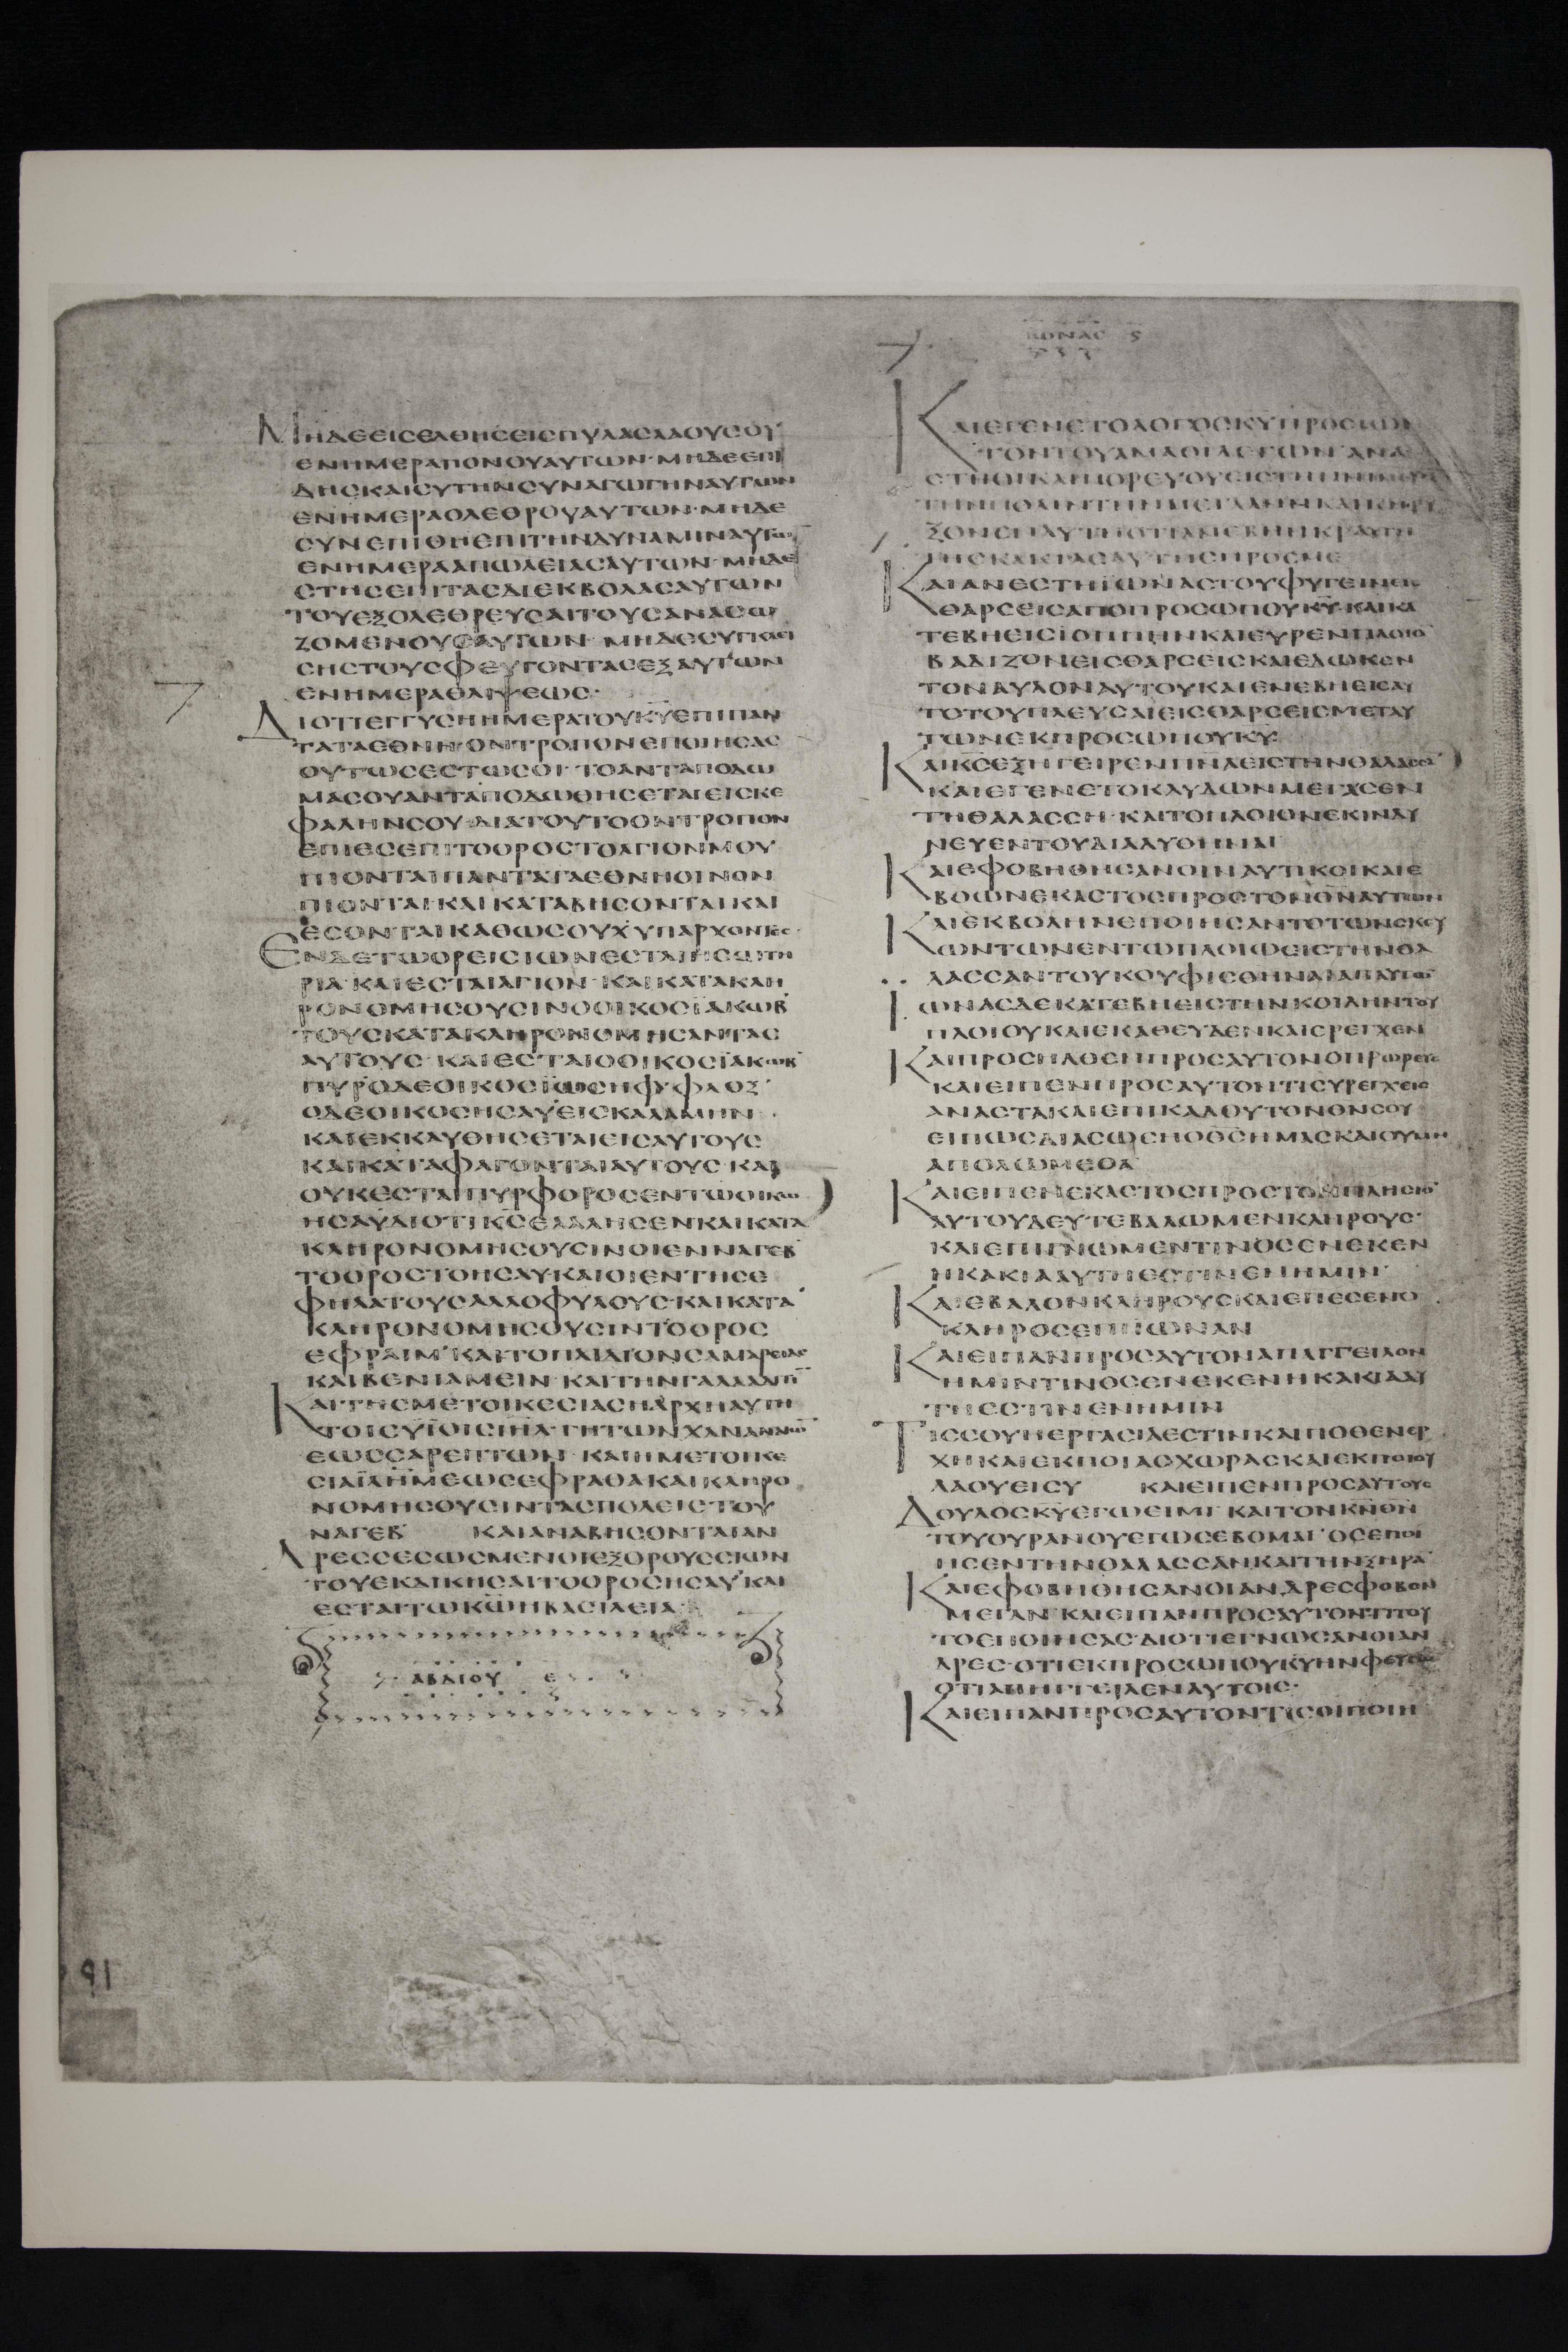 ΜΗΔΕΕΙΣΕΛΘΗΣΕΙΣΠΥΛΑΣΛΑΟΥΣΟΥ
ΕΝΗΜΕΡΑΠΟΝΟΥΑΥΤΩΝ·ΜΗΔΕΕΠΙ
ΔΗΣΚΑΙΣΥΤΗΝΣΥΝΑΓΩΓΗΝΑΥΤΩΝ
ΕΝΗΜΕΡΑΟΛΕΘΡΟΥΑΥΤΩΝ·ΜΗΔΕ
ΣΥΝΕΠΙΘΗΕΠΙΤΗΝΔΥΝΑΜΙΝΑΥΤΩ
ΕΝΗΜΕΡΑΑΠΩΛΕΙΑΣΑΥΤΩΝ·ΜΗΔΕ
ΣΤΗΣΕΠΙΤΑΣΔΙΕΚΒΟΛΑΣΑΥΤΩΝ
ΤΟΥΕΞΟΛΕΘΡΕΥΣΑΙΤΟΥΣΑΝΑΣΩ
ΖΟΜΕΝΟΥΣΑΥΤΩΝ·ΜΗΔΕΣΥΓΚΛΕΙ
ΣΗΣΤΟΥΣΦΕΥΓΟΝΤΑΣΕΞΑΥΤΩΝ
ΕΝΗΜΕΡΑΘΛΙΨΕΩΣ·
ΔΙΟΤΙΕΓΓΥΣΗΗΜΕΡΑΤΟΥΚΥΕΠΙΠΑΝ
ΤΑΤΑΕΘΝΗ·ΟΝΤΡΟΠΟΝΕΠΟΙΗΣΑΣ
ΟΥΤΩΣΕΣΤΩΣΟΙ·ΤΟΑΝΤΑΠΟΔΩ
ΜΑΣΟΥΑΝΤΑΠΟΔΩΘΗΣΕΤΑΙΕΙΣΚΕ
ΦΑΛΗΝΣΟΥ·ΔΙΑΤΟΥΤΟΟΝΤΡΟΠΟΝ
ΕΠΙΕΣΕΠΙΤΟΟΡΟΣΤΟΑΓΙΟΝΜΟΥ
ΠΙΟΝΤΑΙΠΑΝΤΑΤΑΕΘΝΗΟΙΝΟΝ
ΠΙΟΝΤΑΙΚΑΙΚΑΤΑΒΗΣΟΝΤΑΙΚΑΙ
ΕΣΟΝΤΑΙΚΑΘΩΣΟΥΧΥΠΑΡΧΟΝΤΕΣ·
ΕΝΔΕΤΩΟΡΕΙΣΙΩΝΕΣΤΑΙΗΣΩΤΗ
ΡΙΑ·ΚΑΙΕΣΤΑΙΑΓΙΟΝ·ΚΑΙΚΑΤΑΚΛΗ
ΡΟΝΟΜΗΣΟΥΣΙΝΟΟΙΚΟΣΪΑΚΩΒ
ΤΟΥΣΚΑΤΑΚΛΗΡΟΝΟΜΗΣΑΝΤΑΣ
ΑΥΤΟΥΣ·ΚΑΙΕΣΤΑΙΟΟΙΚΟΣΪΑΚΩΒ
ΠΥΡ·ΟΔΕΟΙΚΟΣΪΩΣΗΦ·ΦΛΟΞ·
ΟΔΕΟΙΚΟΣΗΣΑΥ·ΕΙΣΚΑΛΑΜΗΝ·
ΚΑΙΕΚΚΑΥΘΗΣΕΤΑΙΕΙΣΑΥΤΟΥΣ
ΚΑΙΚΑΤΑΦΑΓΟΝΤΑΙΑΥΤΟΥΣ·ΚΑΙ
ΟΥΚΕΣΤΑΙΠΥΡΦΟΡΟΣΕΝΤΩΟΙΚΩ
ΗΣΑΥΔΙΟΤΙΚΣΕΛΑΛΗΣΕΝΚΑΙΚΑΤΑ
ΚΛΗΡΟΝΟΜΗΣΟΥΣΙΝΟΙΕΝΝΑΓΕΒ
ΤΟΟΡΟΣΤΟΗΣΑΥ·ΚΑΙΟΙΕΝΤΗΣΕ
ΦΗΛΑΤΟΥΣΑΛΛΟΦΥΛΟΥΣ·ΚΑΙΚΑΤΑ
ΚΛΗΡΟΝΟΜΗΣΟΥΣΙΝΤΟΟΡΟΣ
ΕΦΡΑΙΜ·ΚΑΙΤΟΠΑΙΔΙΟΝΣΑΜΑΡΕΙΑΣ
ΚΑΙΒΕΝΙΑΜΕΙΝ·ΚΑΙΤΗΝΓΑΛΑΑΔΙΤΙ
ΚΑΙΤΗΣΜΕΤΟΙΚΕΣΙΑΣΗΑΡΧΗΑΥΤΗ
ΤΟΙΣΥΪΟΙΣΙΗΛ·ΓΗΤΩΝΧΑΝΑΝΑΙΩ
ΕΩΣΣΑΡΕΠΤΩΝ·ΚΑΙΗΜΕΤΟΙΚΕ
ΣΙΑΪΛΗΜΕΩΣΕΦΡΑΘΑΚΑΙΚΛΗΡΟ
ΝΟΜΗΣΟΥΣΙΝΤΑΣΠΟΛΕΙΣΤΟΥ
ΝΑΓΕΒ ΚΑΙΑΝΑΒΗΣΟΝΤΑΙΑΝ
ΔΡΕΣΣΕΣΩΣΜΕΝΟΙΕΞΟΡΟΥΣΣΙΩΝ
ΤΟΥΕΚΔΙΚΗΣΑΙΤΟΟΡΟΣΗΣΑΥ·ΚΑΙ
ΕΣΤΑΙΤΩΚΩΗΒΑΣΙΛΕΙΑ·
ΑΒΔΙΟΥ Ε
ΙΩΝΑΣ Ϛ
ΚΑΙΕΓΕΝΕΤΟΛΟΓΟΣΚΥΠΡΟΣΙΩΝΑ
ΤΟΝΤΟΥΑΜΑΘΙΛΕΓΩΝ·ΑΝΑ
ΣΤΗΘΙΚΑΙΠΟΡΕΥΟΥΕΙΣΝΙΝΕΥΗ
ΤΗΝΠΟΛΙΝΤΗΝΜΕΓΑΛΗΝΚΑΙΚΗΡΥ
ΞΟΝΕΝΑΥΤΗΟΤΙΑΝΕΒΗΗΚΡΑΥΓΗ
ΤΗΣΚΑΚΙΑΣΑΥΤΗΣΠΡΟΣΜΕ
ΚΑΙΑΝΕΣΤΗΪΩΝΑΣΤΟΥΦΥΓΕΙΝΕΙΣ
ΘΑΡΣΕΙΣΑΠΟΠΡΟΣΩΠΟΥΚΥ·ΚΑΙΚΑ
ΤΕΒΗΕΙΣΪΟΠΠΗΝΚΑΙΕΥΡΕΝΠΛΟΙΟ
ΒΑΔΙΖΟΝΕΙΣΘΑΡΣΕΙΣΚΑΙΕΔΩΚΕΝ
ΤΟΝΑΥΛΟΝΑΥΤΟΥΚΑΙΕΝΕΒΗΕΙΣΑΥ
ΤΟΤΟΥΠΛΕΥΣΑΙΕΙΣΘΑΡΣΕΙΣΜΕΤΑΥ
ΤΩΝΕΚΠΡΟΣΩΠΟΥΚΥ·
ΚΑΙΚΣΕΞΗΓΕΙΡΕΝΠΝΑΕΙΣΤΗΝΘΑΛΑΣΣΑ
ΚΑΙΕΓΕΝΕΤΟΚΛΥΔΩΝΜΕΓΑΣΕΝ
ΤΗΘΑΛΑΣΣΗ·ΚΑΙΤΟΠΛΟΙΟΝΕΚΙΝΔΥ
ΝΕΥΕΝΤΟΥΔΙΑΛΥΘΗΝΑΙ
ΚΑΙΕΦΟΒΗΘΗΣΑΝΟΙΝΑΥΤΙΚΟΙΚΑΙΕ
ΒΟΩΝΕΚΑΣΤΟΣΠΡΟΣΤΟΝΘΝΑΥΤΩΝ
ΚΑΙΕΚΒΟΛΗΝΕΠΟΙΗΣΑΝΤΟΤΩΝΣΚΕΥ
ΩΝΤΩΝΕΝΤΩΠΛΟΙΩΕΙΣΤΗΝΘΑ
ΛΑΣΣΑΝΤΟΥΚΟΥΦΙΣΘΗΝΑΙΑΠΑΥΤΩ
ΙΩΝΑΣΔΕΚΑΤΕΒΗΕΙΣΤΗΝΚΟΙΛΗΝΤΟΥ
ΠΛΟΙΟΥΚΑΙΕΚΑΘΕΥΔΕΝΚΑΙΕΡΕΓΧΕΝ
ΚΑΙΠΡΟΣΗΛΘΕΝΠΡΟΣΑΥΤΟΝΟΠΡΩΡΕΥΣ
ΚΑΙΕΙΠΕΝΠΡΟΣΑΥΤΟΝΤΙΣΥΡΕΓΧΕΙΣ
ΑΝΑΣΤΑΚΑΙΕΠΙΚΑΛΟΥΤΟΝΘΝΣΟΥ
ΕΙΠΩΣΔΙΑΣΩΣΗΟΘΣΗΜΑΣΚΑΙΟΥΜΗ
ΑΠΟΛΩΜΕΘΑ
ΚΑΙΕΙΠΕΝΕΚΑΣΤΟΣΠΡΟΣΤΟΝΠΛΗΣΙΟ
ΑΥΤΟΥΔΕΥΤΕΒΑΛΩΜΕΝΚΛΗΡΟΥΣ·
ΚΑΙΕΠΙΓΝΩΜΕΝΤΙΝΟΣΕΝΕΚΕΝ
ΗΚΑΚΙΑΑΥΤΗΕΣΤΙΝΕΝΗΜΙΝ·
ΚΑΙΕΒΑΛΟΝΚΛΗΡΟΥΣΚΑΙΕΠΕΣΕΝΟ
ΚΛΗΡΟΣΕΠΙΪΩΝΑΝ
ΚΑΙΕΙΠΑΝΠΡΟΣΑΥΤΟΝΑΠΑΓΓΕΙΛΟΝ
ΗΜΙΝΤΙΝΟΣΕΝΕΚΕΝΗΚΑΚΙΑΑΥ
ΤΗΕΣΤΙΝΕΝΗΜΙΝ
ΤΙΣΣΟΥΗΕΡΓΑΣΙΑΕΣΤΙΝΚΑΙΠΟΘΕΝΕΡ
ΧΗΚΑΙΕΚΠΟΙΑΣΧΩΡΑΣΚΑΙΕΚΠΟΙΟΥ
ΛΑΟΥΕΙΣΥ ΚΑΙΕΙΠΕΝΠΡΟΣΑΥΤΟΥΣ
ΔΟΥΛΟΣΚΥΕΓΩΕΙΜΙ·ΚΑΙΤΟΝΚΝΘΝ
ΤΟΥΟΥΡΑΝΟΥΕΓΩΣΕΒΟΜΑΙ·ΟΣΕΠΟΙ
ΗΣΕΝΤΗΝΘΑΛΑΣΣΑΝΚΑΙΤΗΝΞΗΡΑ
ΚΑΙΕΦΟΒΗΘΗΣΑΝΟΙΑΝΔΡΕΣΦΟΒΟΝ
ΜΕΓΑΝ·ΚΑΙΕΙΠΑΝΠΡΟΣΑΥΤΟΝ·ΤΙΤΟΥ
ΤΟΕΠΟΙΗΣΑΣ·ΔΙΟΤΙΕΓΝΩΣΑΝΟΙΑΝ
ΔΡΕΣ·ΟΤΙΕΚΠΡΟΣΩΠΟΥΚΥΗΝΦΕΥΓΩ
ΟΤΙΑΠΗΓΓΕΙΛΕΝΑΥΤΟΙΣ·
ΚΑΙΕΙΠΑΝΠΡΟΣΑΥΤΟΝΤΙΣΟΙΠΟΙΗ
91